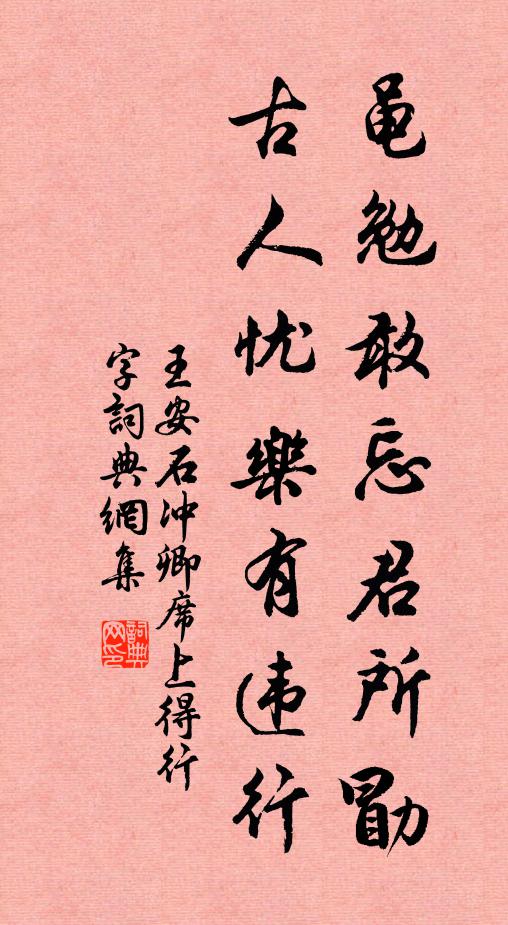 黽勉敢忘君所勖
古人忧樂有违行
王安石冲卿席上得行
字詞典網集
詞典
网印